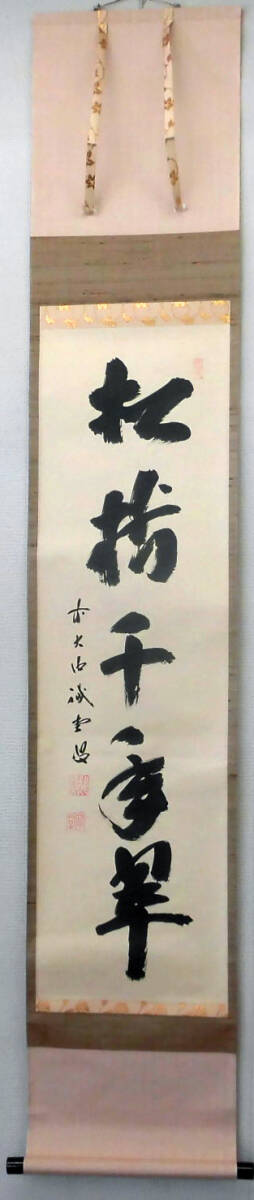 松樹千年翠
前大 誠堂